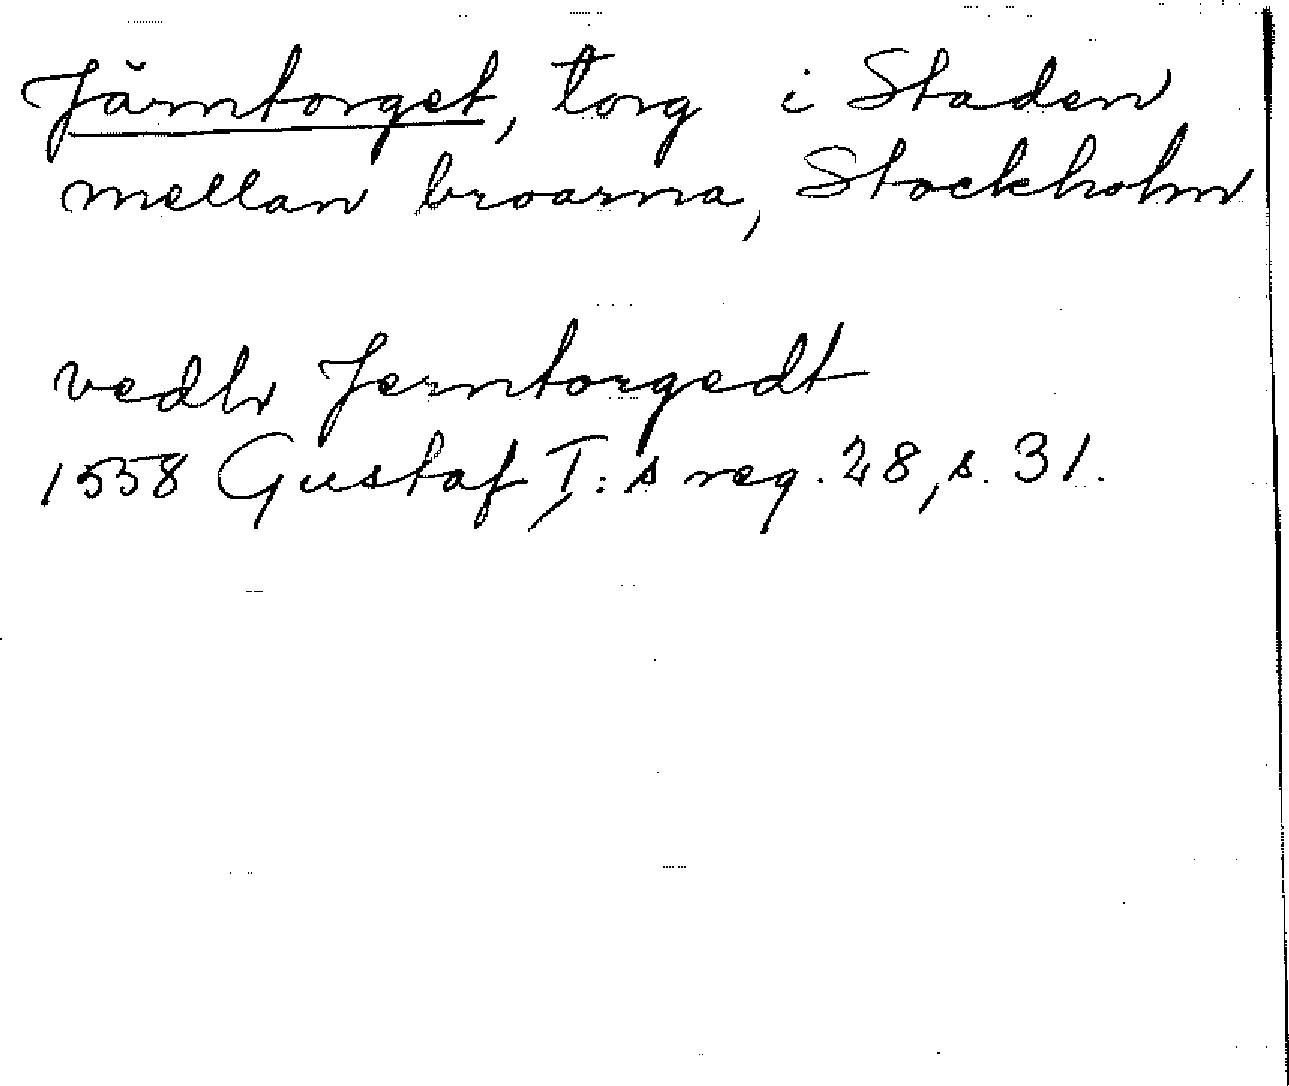 Järntorget, torg i Staden
mellan broarna, Stockholm
vedh Jerntorgedt
1558 Gustaf I:s reg. 28, s. 31.